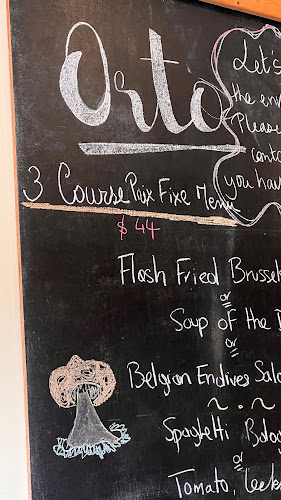 Orto
Let's
the env
Please
conta
you hav
3 Course Prix Fixe Menu
$ 44
Flash Fried Brussel
or
Soup of the D
or
Belgian Endives Sala
~ . ~
Spaghetti Bolog
or
Tomato, Leeks